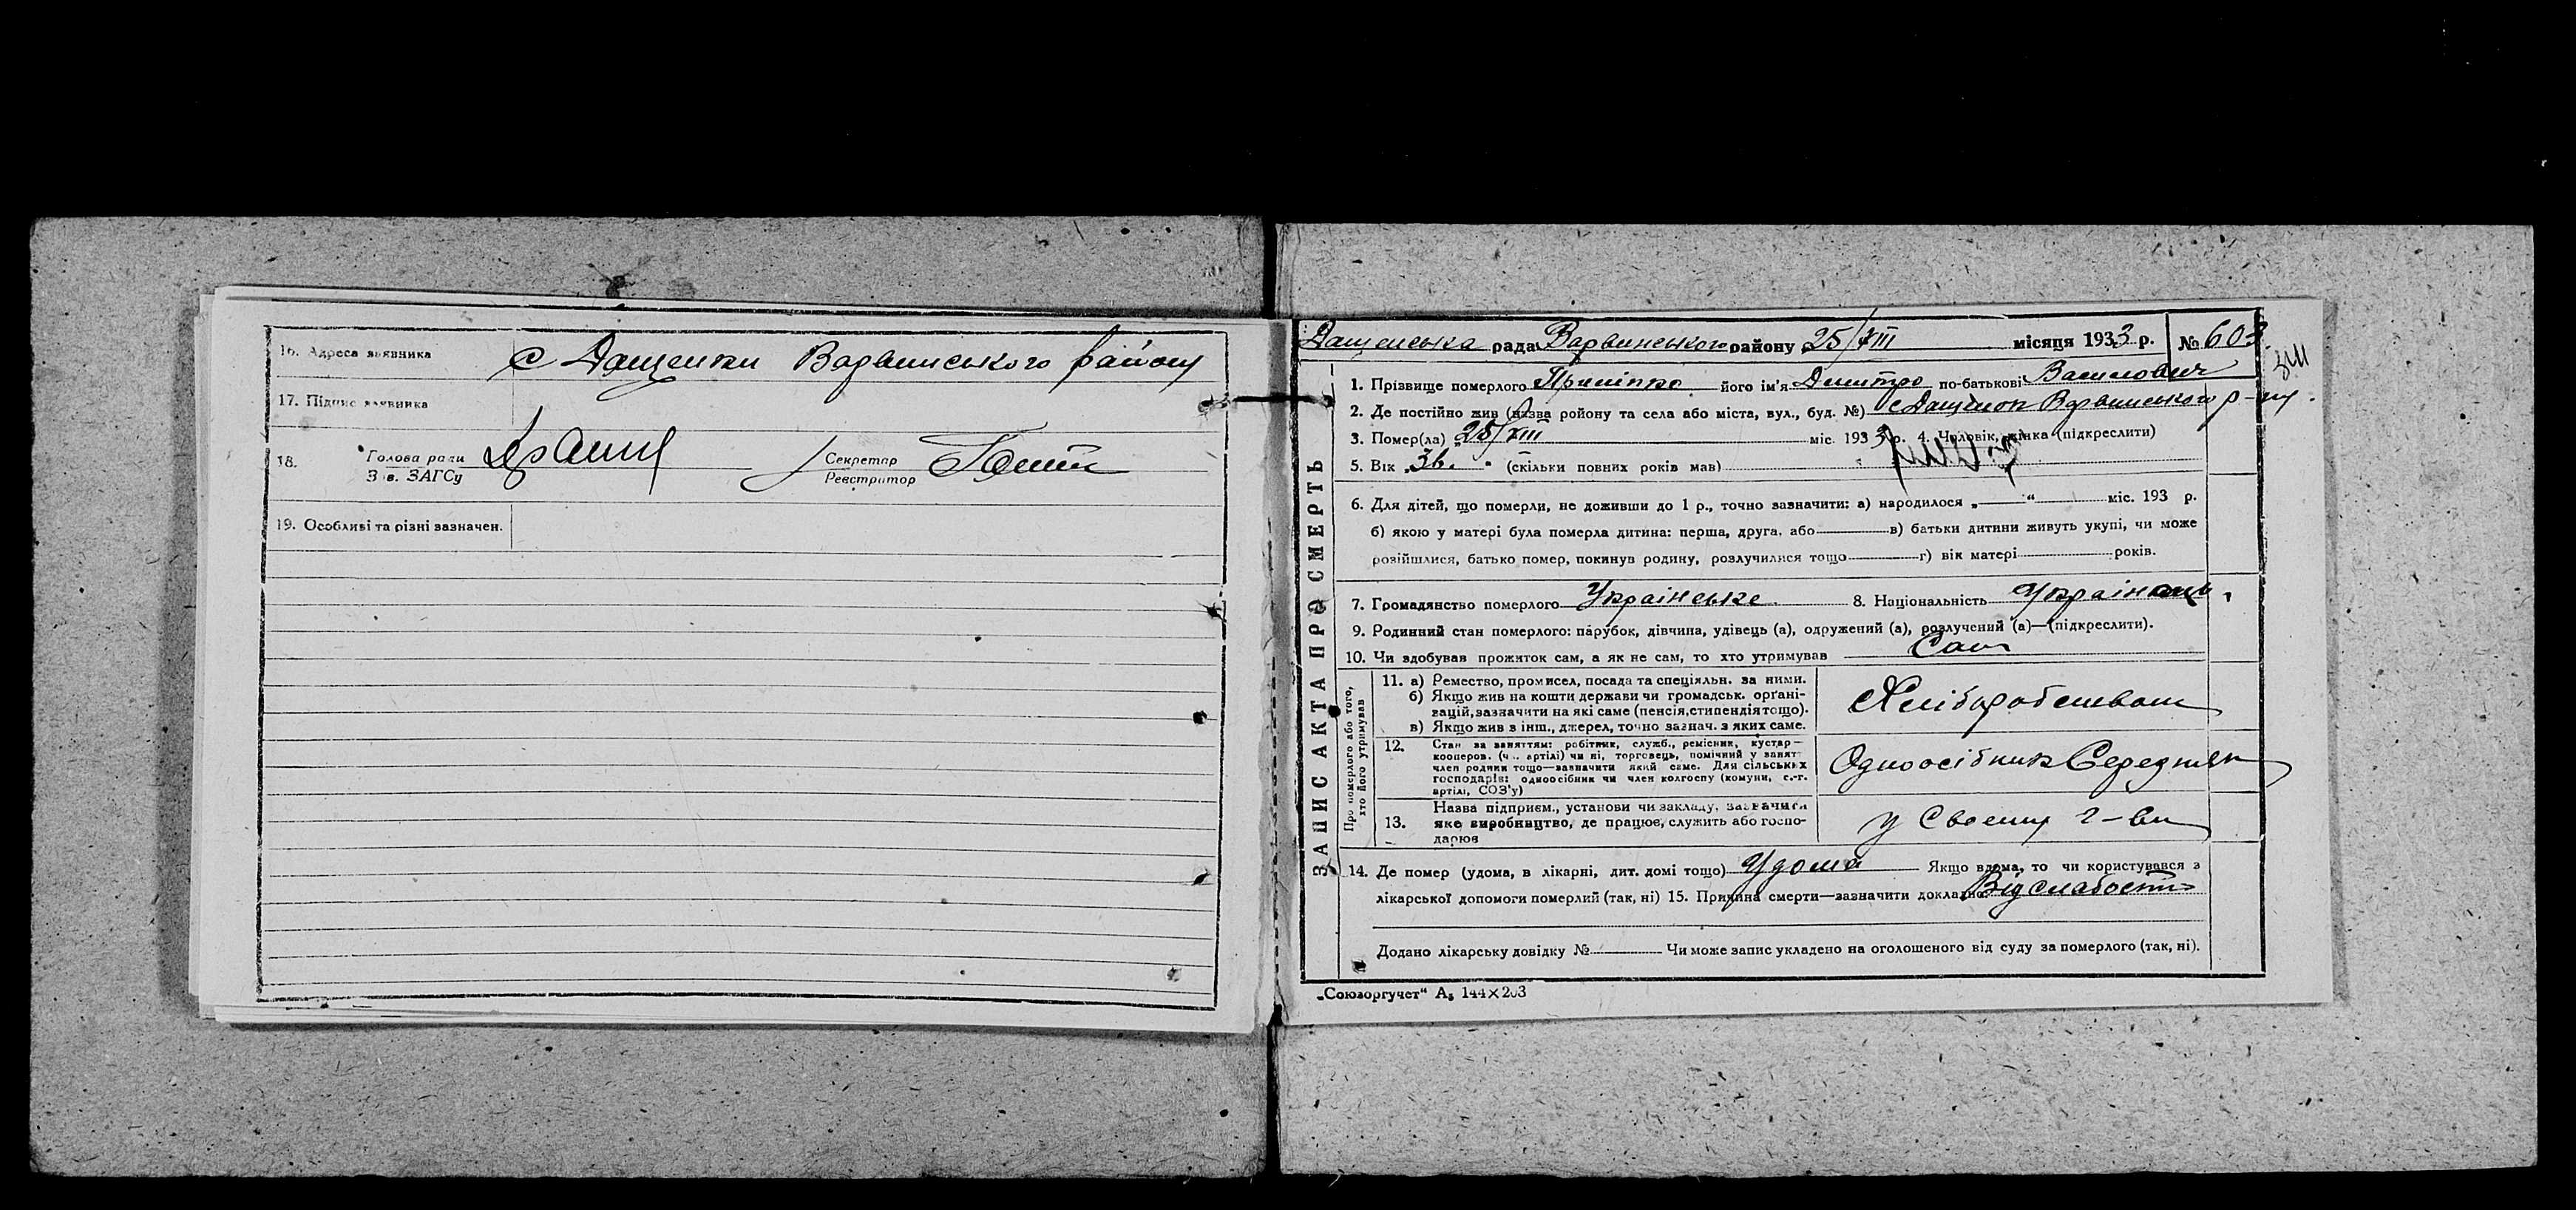 16. Адреса заявника С Дащенки Варвинського району
17. Підпис заявника
18. Голова ради Секретар
Зав. ЗАГСу Реєстратор
19. Особливі та різні зазначен.
Дащенська рада Варвинського району 25/VIII місяця 1933 р. № 603.
ЗАПИС АКТА ПРО СМЕРТЬ
1. Прізвище померлого Приліпко його ім'я Дмитро по-батькові Василович
2. Де постійно жив (назва району та села або міста, вул., буд. №) с Дащенок Варвинського р-ну.
3. Помер(ла) 25/VIII міс. 1933 р. 4. Чоловік, жінка (підкреслити)
5. Вік 36. (скільки повних років мав)
6. Для дітей, що померли, не доживши до 1 р., точно зазначити: а) народилося „ “ міс. 193 р.
б) якою у матері була померла дитина: перша, друга, або в) батьки дитини живуть укупі, чи може
розійшлися, батько помер, покинув родину, розлучилися тощо г) вік матері років.
7. Громадянство померлого Українське 8. Національність Українець
9. Родинний стан померлого: парубок, дівчина, удівець (а), одружений (а), розлучений (а)—(підкреслити).
10. Чи здобував прожиток сам, а як не сам, то хто утримував Сам
Про померлого або того, хто його утримував
11. а) Ремество, промисел, посада та спеціяльн. за ними.
б) Якщо жив на кошти держави чи громадськ. орґані-
зацій, зазначити на які саме (пенсія, стипендія тощо).
в) Якщо жив з інш., джерел, точно зазнач. з яких саме.
Хліборобством
12. Стан за заняттям: робітник, служб., ремісник, кустар—
кооперов. (чл. артілі) чи ні, торговець, помічний у занят-
член родини тощо—зазначити який саме. Для сільських
господарів: одноосібник чи член колгоспу (комуни, с.-г.
артілі, СОЗ'у)
Одноосібник Середняк
13. Назва підприєм., установи чи закладу, зазначити
яке виробництво, де працює, служить або госпо-
дарює
у Своему г-ві
14. Де помер (удома, в лікарні, дит. домі тощо) Удома Якщо вдома, то чи користувався з
лікарської допомоги померлий (так, ні) 15. Причина смерти—зазначити докладно Від слабости
Додано лікарську довідку № Чи може запис укладено на оголошеного від суду за померлого (так, ні).
„Союзоргучет“ А₅ 144×203